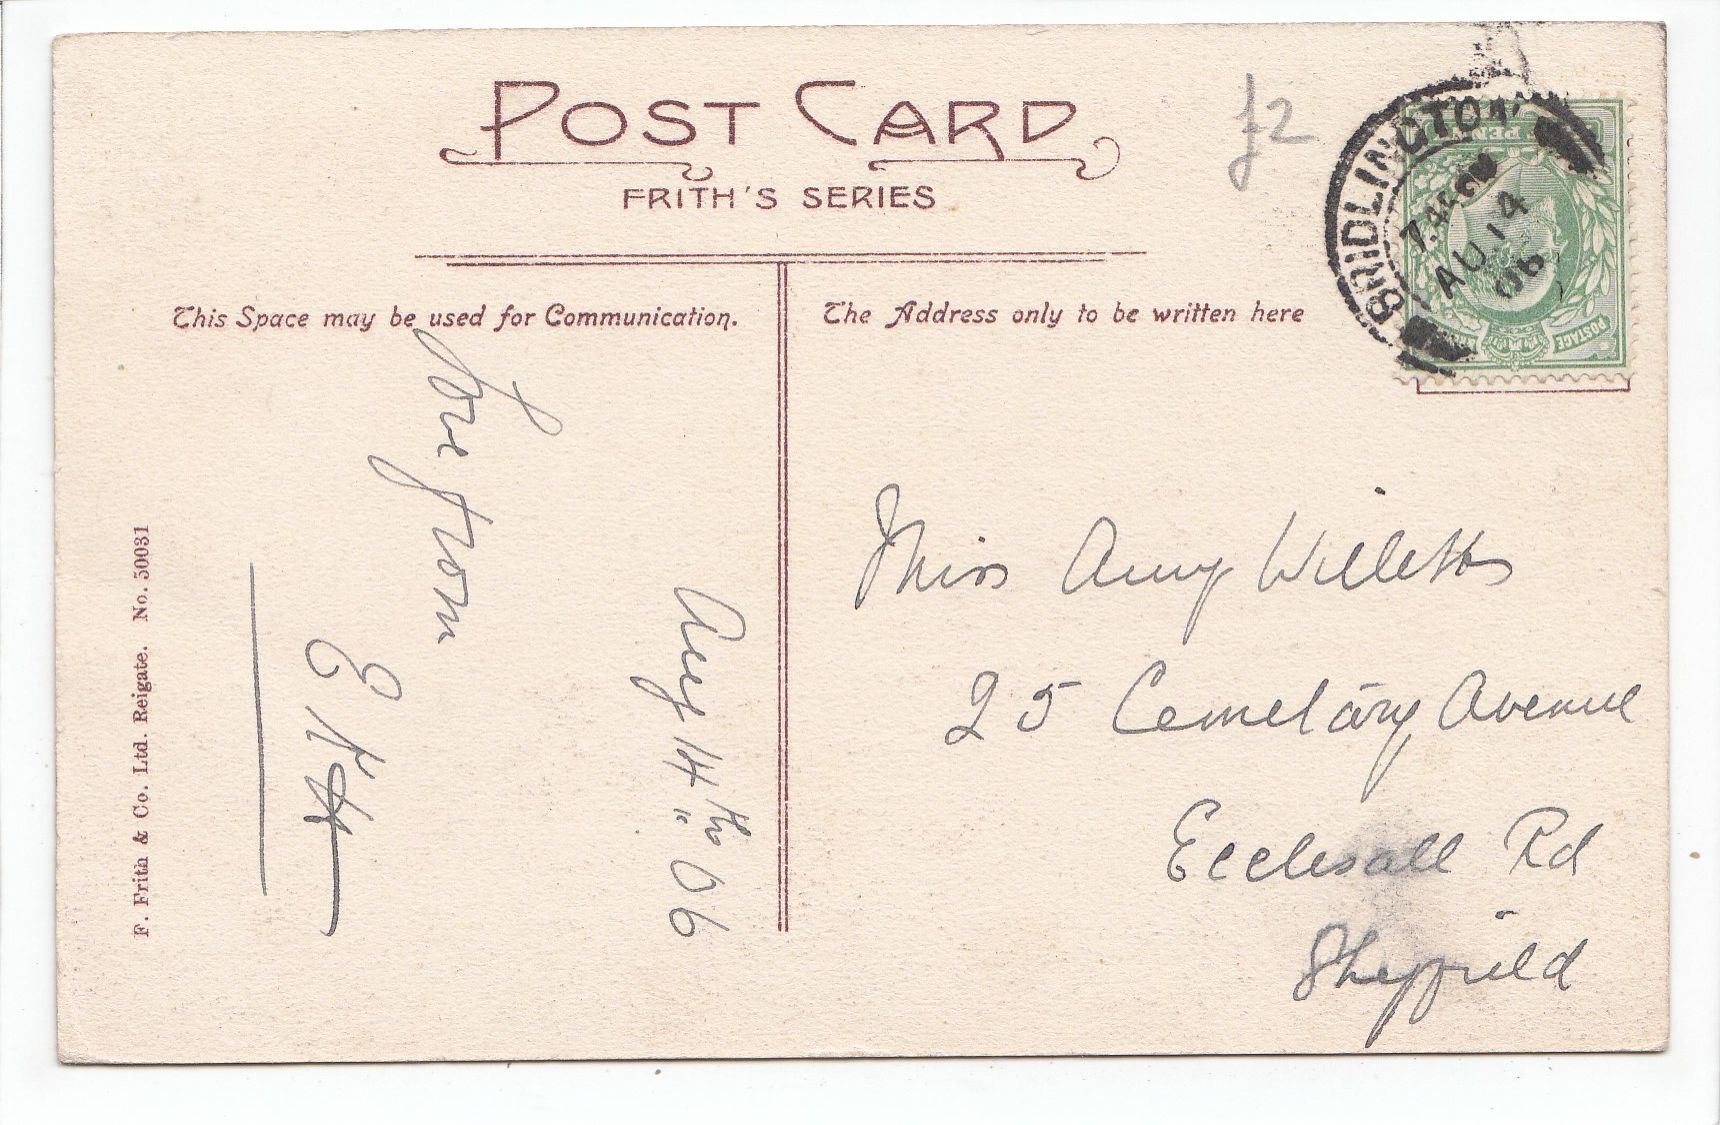 POST CARD
FRITH'S SERIES
£2
BRIDLINGTON
7.45 PM
AU 14
06
PENNY
POSTAGE
This Space may be used for Communication.
The Address only to be written here
Love from
E H
Aug 14th 06
Miss Amy Willetts
25 Cemetary Avenue
Ecclesall Rd
Sheffield
F. Frith & Co. Ltd. Reigate. No. 50031